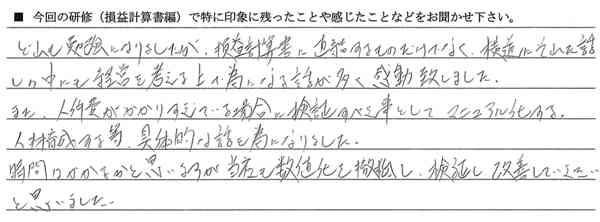 ■ 今回の研修（損益計算書編）で特に印象に残ったことや感じたことなどをお聞かせ下さい。
どれも勉強になりましたが、損益計算書に直結するものだけでなく、横道にそれた話
しの中にも経営を考える上で為になる話が多く感動致しました。
また、人件費がかかりすぎている場合に検証すべき事として マニュアル化する。
人材育成する等、具体的な話も為になりました。
時間はかかるかと思いるが 当店も数値化を徹底し、検証し改善していきたい
と思いました。